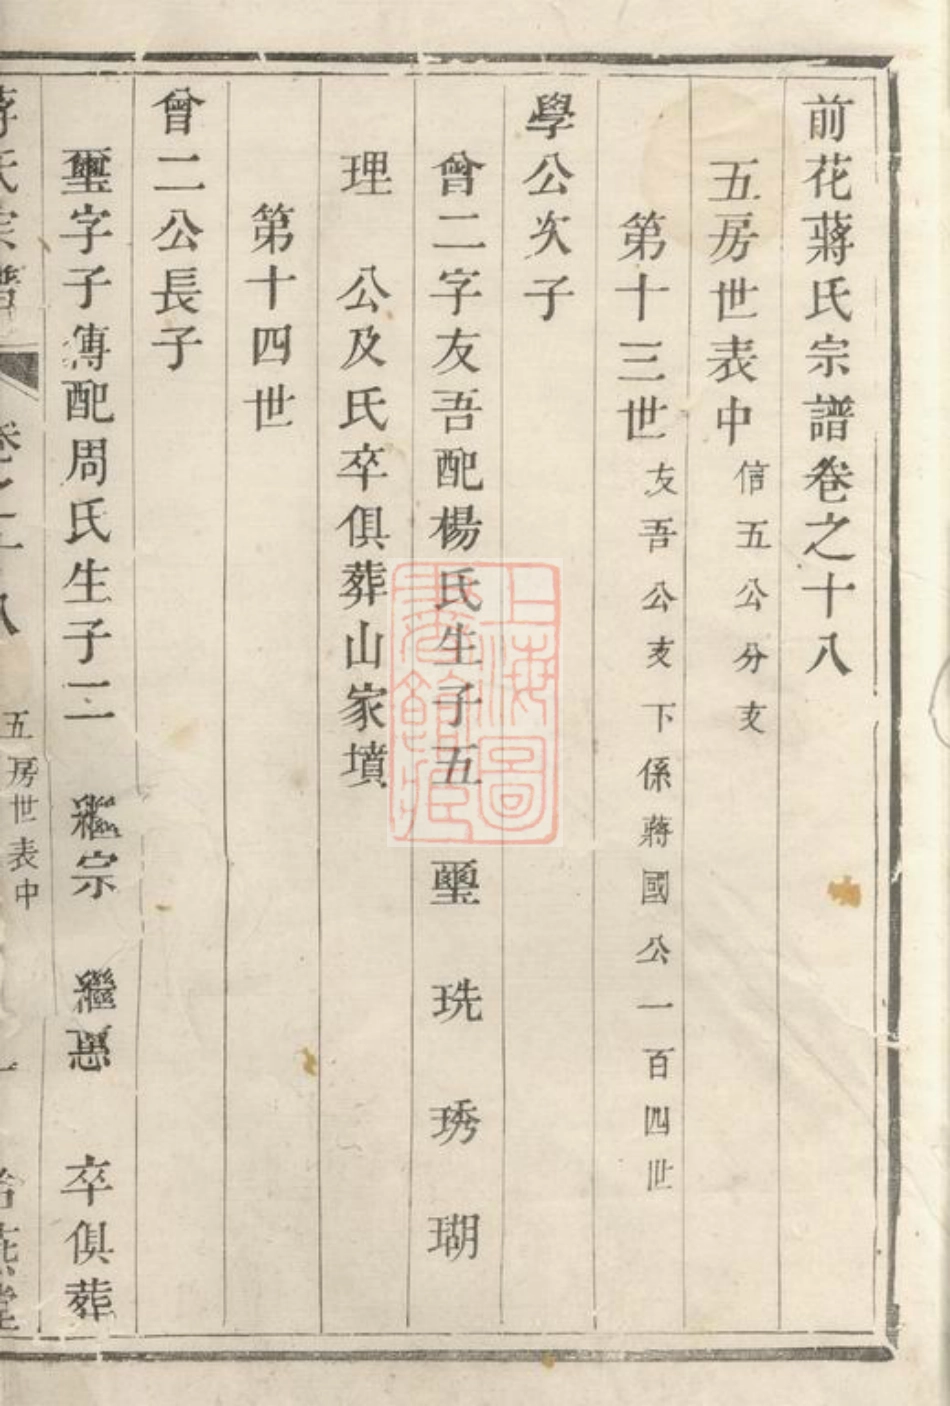 前花蔣氏宗譜卷之十八
五房世表中 信五公分支
第十三世 友吾公支下係蔣國公一百四世
學公次子
曾二字友吾配楊氏生子五 璽 珗 琇 瑚
理 公及氏卒俱葬山家墳
第十四世
曾二公長子
璽字子傳配周氏生子二 繼宗 繼 卒俱葬
五房世表中
上海圖
書館藏